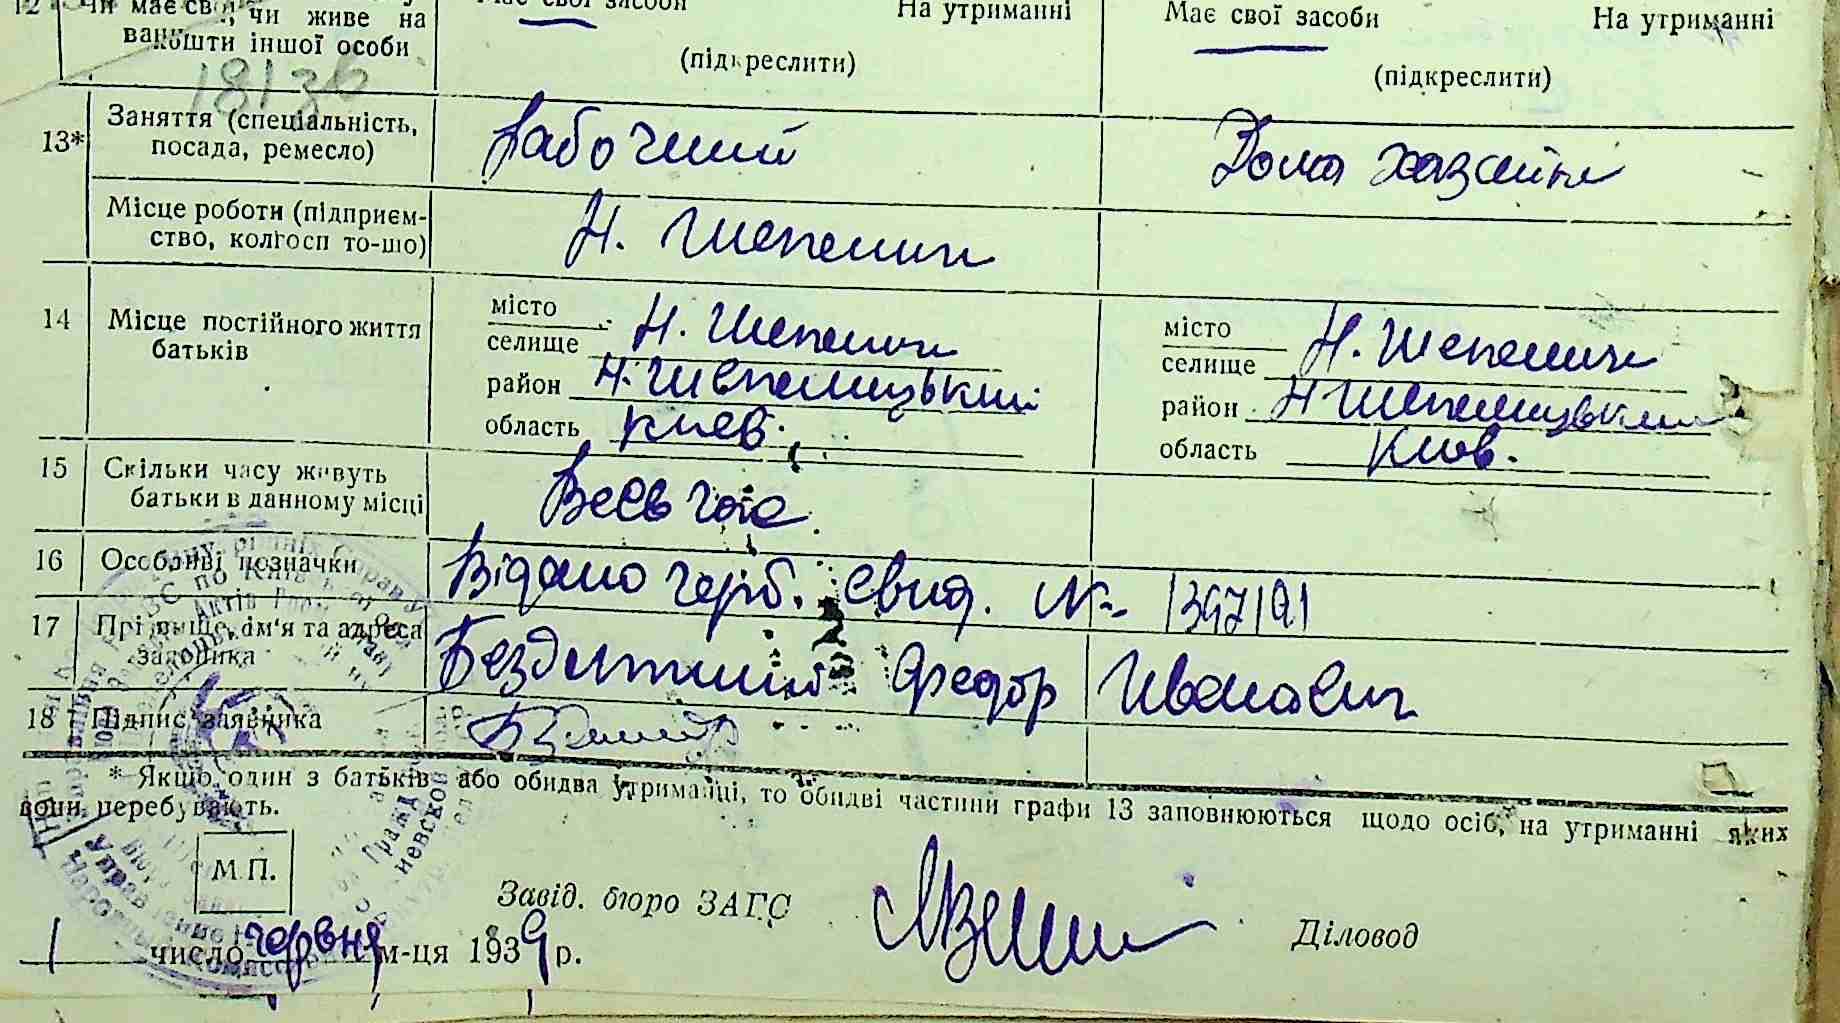 12 Чи має
чи живе на
кошти іншої особи
Має свої засоби На утриманні
(підкреслити)
Має свої засоби На утриманні
(підкреслити)
18136
13* Заняття (спеціальність,
посада, ремесло)
Рабочий
Дома хазяйка
Місце роботи (підприєм-
ство, колгосп то-що)
Н. Шепелич
14 Місце постійного життя
батьків
місто
селище Н. Шепелич
район Н. Шепелицький
область Киев.
місто
селище Н. Шепелич
район Н Шепелицький
область Киев.
15 Скільки часу живуть
батьки в данному місці
Весь час
16 Особливі позначки
Відано герб. свид. №
17 Прізвище, ім'я та адреса
заявника
Федор Иванович
18 Підпис заявника
* Якщо один з батьків або обидва утриманці, то обидві частини графи 13 заповнюються щодо осіб, на утриманні яких
вони перебувають.
М.П.
Завід. бюро ЗАГС
Діловод
1 число червня м-ця 1939 р.